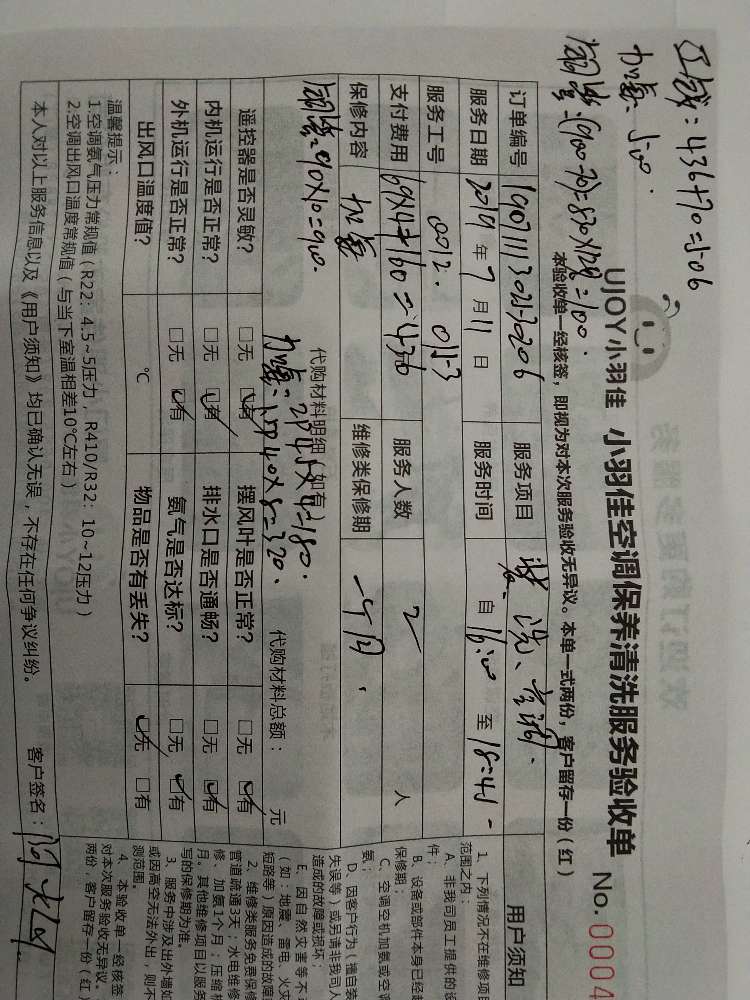 江成：436+70=506
加氨：500.
铜管：(900-70)=830×12%=100.
UJOY小羽佳 小羽佳空调保养清洗服务验收单 No.0004
本验收单一经核签，即视为对本次服务验收无异议。本单一式两份，客户留存一份（红）
订单编号 服务项目
服务日期 2019 年 7 月 11 日 服务时间 自 16:00 至 18:45
服务工号 0012. 0153 服务人数 2 人
支付费用 69×4+160=436 维修类保修期 一个月.
保修内容 加氨
代购材料明细（如有） 代购材料总额： 元
铜管：90×10=900.
45×4=180.
40×8=320.
遥控器是否灵敏？ □无 □有 摆风叶是否正常？ □无 □有
内机运行是否正常？ □无 □有 排水口是否通畅？ □无 □有
外机运行是否正常？ □无 □有 氨气是否达标？ □无 □有
出风口温度值？ ℃ 物品是否有丢失？ □无 □有
温馨提示：
1.空调氨气压力常规值（R22：4.5~5压力，R410/R32：10~12压力）
2.空调出风口温度常规值（与当下室温相差10℃左右）
本人对以上服务信息以及《用户须知》均已确认无误，不存在任何争议纠纷。 客户签名：
用户须知
1、下列情况不在维修项目
范围之内：
A、非我司员工提供的
件；
B、设备或部件本身已经
保修期；
C、空调空机加氨或空
氨；
D、因客户行为（擅自
失误等）或另请非我司人
造成的故障或损坏；
E、因自然灾害等不
（如：地震、雷电、火灾
短路等）原因造成的故障
2、维修类服务免费保修
管道疏通3天；水电维修
修、加氨1个月；压缩机
月。其他维修项目以服务
写的保修期为准。
3、服务中涉及出外墙
或因高空无法外出，则不
测范围。
4、本验收单一经核签
对本次服务验收无异议
两份，客户留存一份（红）